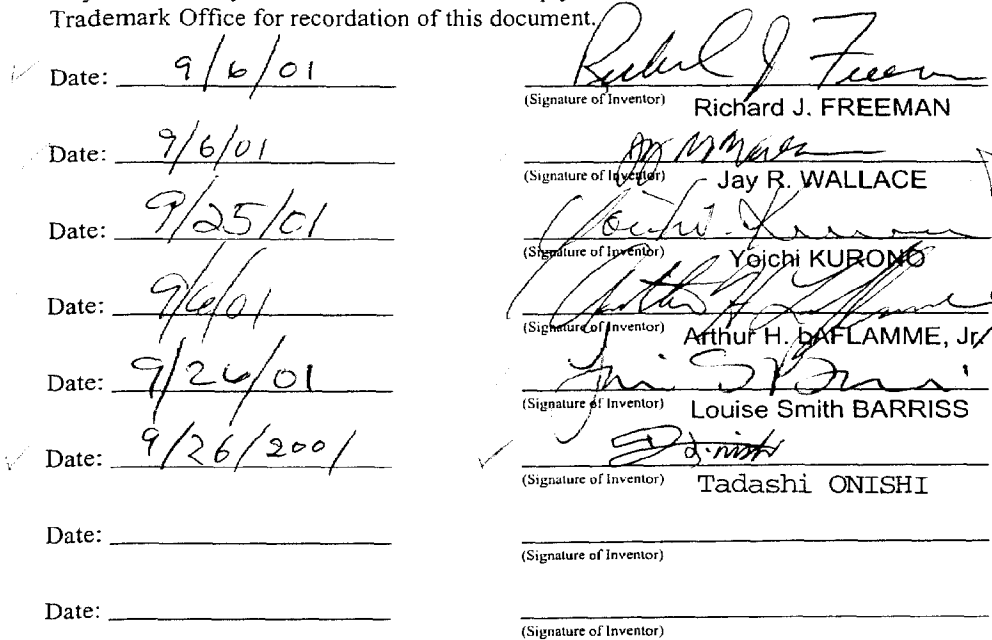 Trademark Office for recordation of this document.
Date: 9/6/01
(Signature of Inventor) Richard J. FREEMAN
Date: 9/6/01
(Signature of Inventor) Jay R. WALLACE
Date: 9/25/01
(Signature of Inventor) Yoichi KURONO
Date: 9/6/01
(Signature of Inventor) Arthur H. LAFLAMME, Jr.
Date: 9/26/01
(Signature of Inventor) Louise Smith BARRISS
Date: 9/26/2001
(Signature of Inventor) Tadashi ONISHI
Date:
(Signature of Inventor)
Date:
(Signature of Inventor)